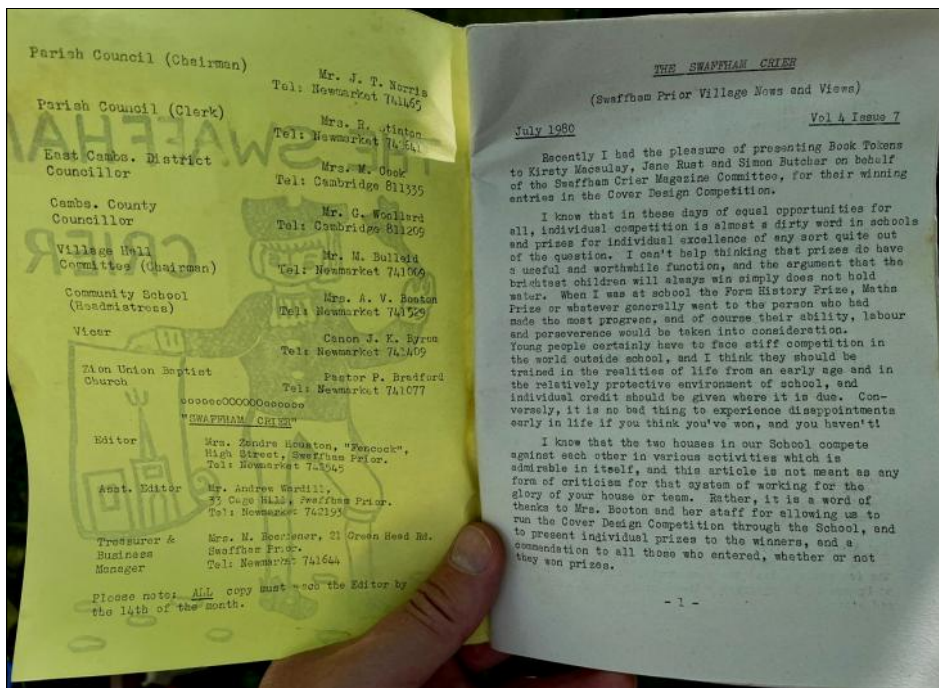 Parish Council (Chairman)
Mr. J. T. Norris
Tel: Newmarket 741465
Parish Council (Clerk)
Mrs. R. Stinton
Tel: Newmarket
East Cambs. District
Councillor
Mrs. M. Cook
Tel: Cambridge 811335
Cambs. County
Councillor
Mr. G. Woollard
Tel: Cambridge 811209
Village Hall
Committee (Chairman)
Mr. M. Bulleid
Tel: Newmarket 741069
Community School
(Headmistress)
Mrs. A. V. Booton
Tel: Newmarket 741529
Vicar
Canon J. K. Byron
Tel: Newmarket 741409
Zion Union Baptist
Church
Pastor P. Bradford
Tel: Newmarket 741077
"SWAFFHAM CRIER"
Editor
Mrs. Zendre Houston, "Fencock",
High Street, Swaffham Prior.
Tel: Newmarket
Asst. Editor
Mr. Andrew Wardill,
33 Cage Hill, Swaffham Prior.
Tel: Newmarket 742193
Treasurer &
Business
Manager
Mrs. M. 21 Green Head Rd.
Swaffham Prior.
Tel: Newmarket 741644
Please note: ALL copy must reach the Editor by
the 14th of the month.
THE SWAFFHAM CRIER
(Swaffham Prior Village News and Views)
July 1980
Vol 4 Issue 7
Recently I had the pleasure of presenting Book Tokens
to Kirsty Macaulay, Jane Rust and Simon Butcher on behalf
of the Swaffham Crier Magazine Committee, for their winning
entries in the Cover Design Competition.
I know that in these days of equal opportunities for
all, individual competition is almost a dirty word in schools
and prizes for individual excellence of any sort quite out
of the question. I can't help thinking that prizes do have
a useful and worthwhile function, and the argument that the
brightest children will always win simply does not hold
water. When I was at school the Form History Prize, Maths
Prize or whatever generally went to the person who had
made the most progress, and of course their ability, labour
and perseverence would be taken into consideration.
Young people certainly have to face stiff competition in
the world outside school, and I think they should be
trained in the realities of life from an early age and in
the relatively protective environment of school, and
individual credit should be given where it is due. Con-
versely, it is no bad thing to experience disappointments
early in life if you think you've won, and you haven't!
I know that the two houses in our School compete
against each other in various activities which is
admirable in itself, and this article is not meant as any
form of criticism for that system of working for the
glory of your house or team. Rather, it is a word of
thanks to Mrs. Booton and her staff for allowing us to
run the Cover Design Competition through the School, and
to present individual prizes to the winners, and a
commendation to all those who entered, whether or not
they won prizes.
- 1 -